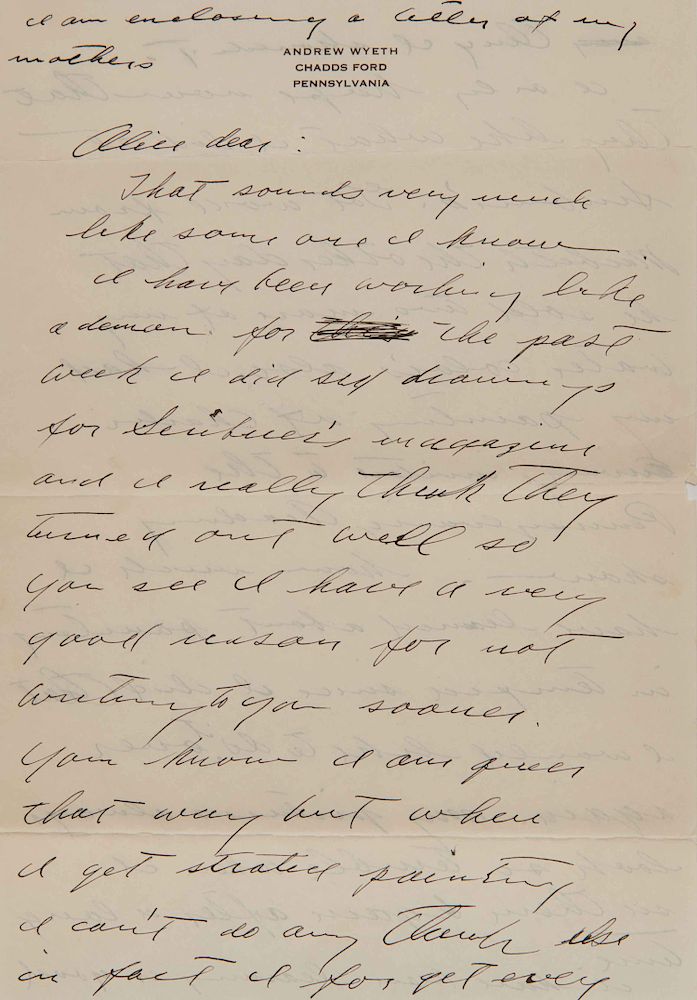 I am enclosing a letter of my
mothers
ANDREW WYETH
CHADDS FORD
PENNSYLVANIA
Alice dear:
That sounds very much
like some one I know
I have been working like
a demon for this the past
week I did six drawings
for Scribner's magazine
and I really think they
turned out well so
you see I have a very
good reason for not
writing to you sooner.
you know I am queer
that way but when
I get strated painting
I can't do any think else
in fact I for get every